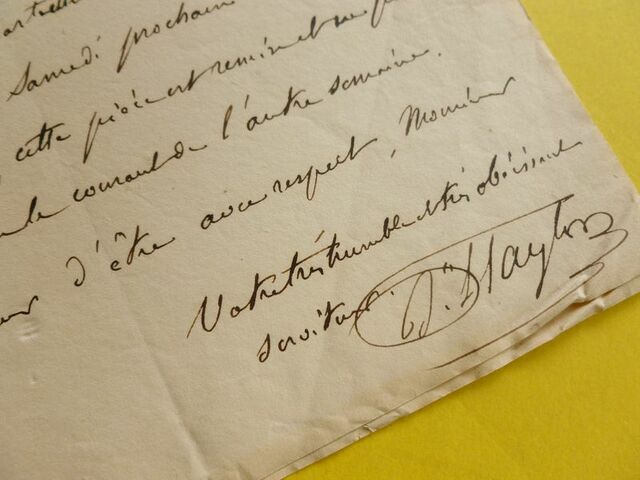 Samedi prochain
cette pièce est remise et ne
le courant de l'autre semaine.
d'être avec respect, Monsieur
Votre très humble et très obéissant
serviteur. Taylor